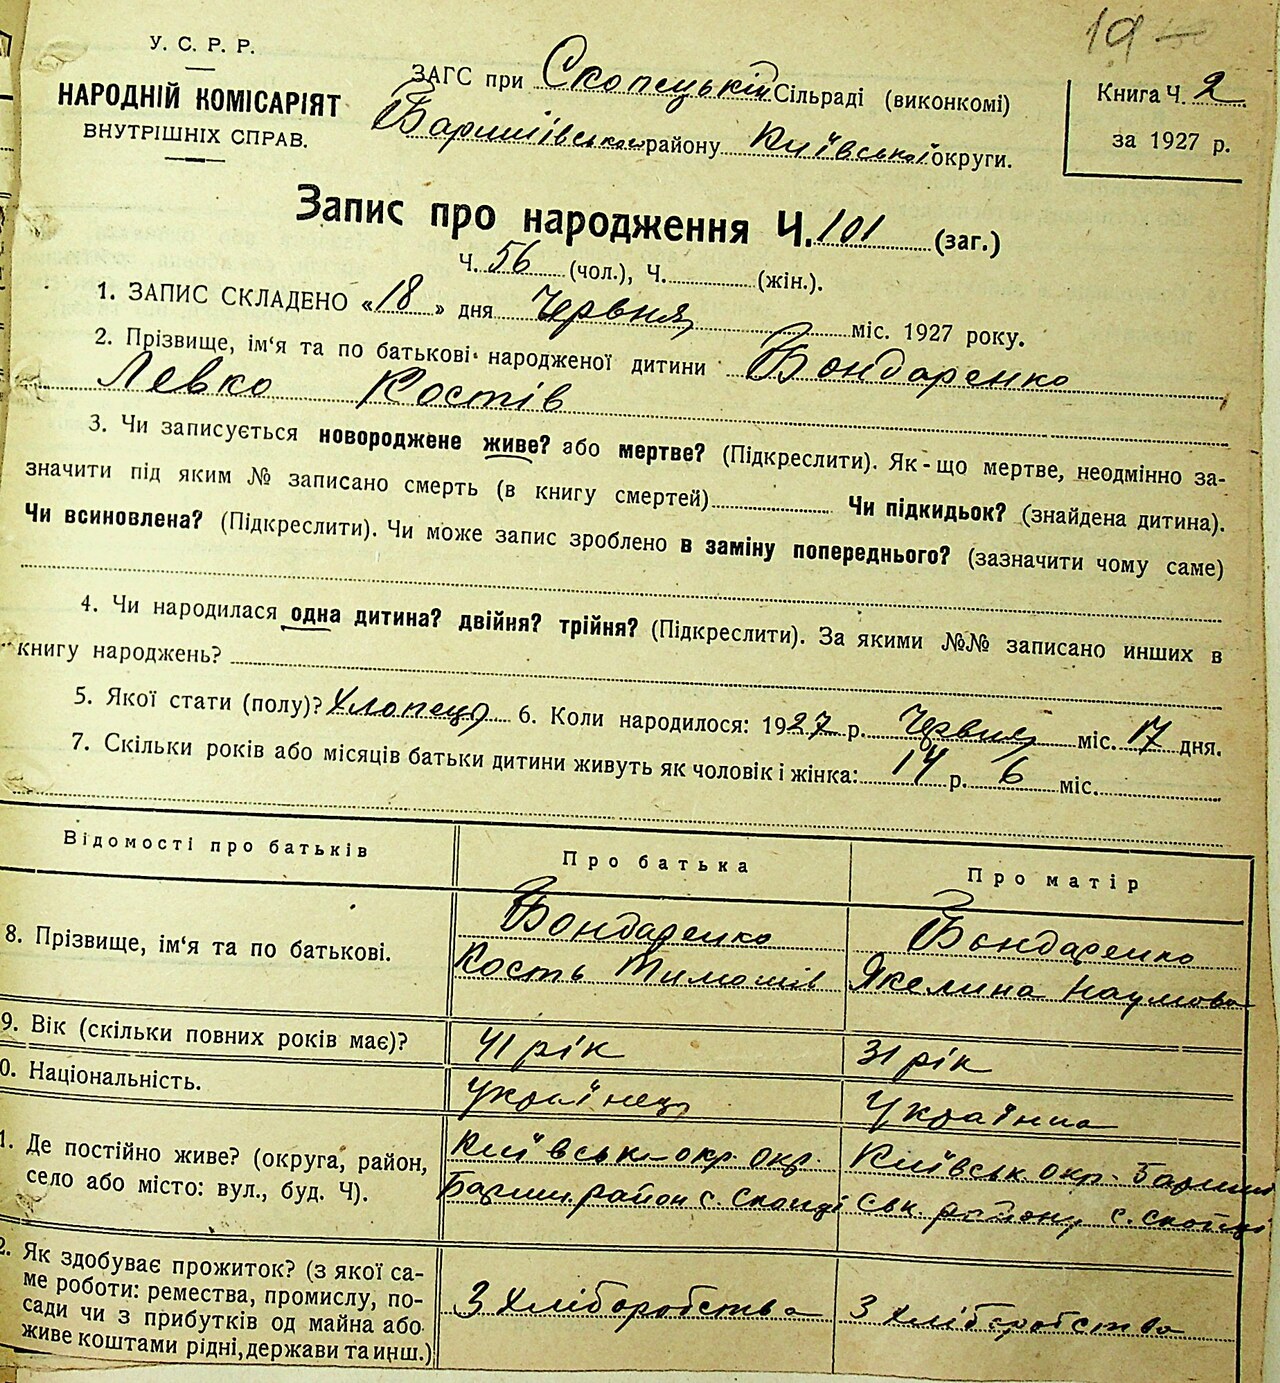 19
У. С. Р. Р.
НАРОДНІЙ КОМІСАРІЯТ
ВНУТРІШНІХ СПРАВ.
ЗАГС при Скопецькій Сільраді (виконкомі)
Баришівського району Київської округи.
Книга Ч. 2
за 1927 р.
Запис про народження Ч. 101 (заг.)
Ч. 56 (чол.), Ч. (жін.).
1. ЗАПИС СКЛАДЕНО «18» дня Червня міс. 1927 року.
2. Прізвище, ім‘я та по батькові народженої дитини Бондаренко
Левко Костів
3. Чи записується новороджене живе? або мертве? (Підкреслити). Як-що мертве, неодмінно за-
значити під яким № записано смерть (в книгу смертей) Чи підкидьок? (знайдена дитина).
Чи всиновлена? (Підкреслити). Чи може запис зроблено в заміну попереднього? (зазначити чому саме)
4. Чи народилася одна дитина? двійня? трійня? (Підкреслити). За якими №№ записано инших в
книгу народжень?
5. Якої стати (полу)? Хлопець 6. Коли народилося: 1927 р. Червня міс. 17 дня.
7. Скільки років або місяців батьки дитини живуть як чоловік і жінка: 14 р. 6 міс.
Відомості про батьків Про батька Про матір
8. Прізвище, ім‘я та по батькові. Бондаренко Бондаренко
Кость Тимошів Якелина Наумова
9. Вік (скільки повних років має)? 41 рік 31 рік
0. Національність. Українець Українка
1. Де постійно живе? (округа, район, Київськ окр. окр. Київськ окр. Бариші
село або місто: вул., буд. Ч). Бариш. район с. Скопці свк. району с. Скопці
2. Як здобуває прожиток? (з якої са-
ме роботи: ремества, промислу, по-
сади чи з прибутків од майна або З хліборобства З хліборобства
живе коштами рідні, держави та инш.)